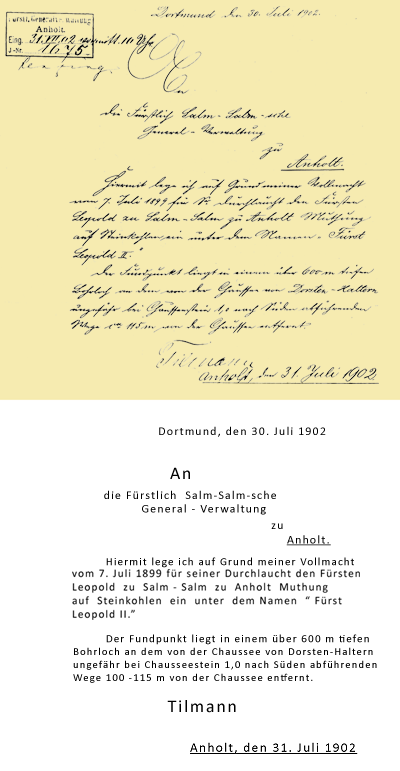 Dortmund den 30. Juli 1902.
Fürstl. General-Verwaltung
Anholt.
Eing. 31.VII.02 vormitt. 10 Uhr
J.-Nr. 1675.
An
die Fürstlich Salm-Salm-sche
General-Verwaltung
zu
Anholt.
Hiermit lege ich auf Grund meiner Vollmacht
vom 7. Juli 1899 für Sr. Durchlaucht den Fürsten
Leopold zu Salm-Salm zu Anholt Muthung
auf Steinkohlen ein unter dem Namen „Fürst
Leopold II."
Der Fundpunkt liegt in einem über 600 m tiefen
Bohrloch an dem von der Chaussee von Dorsten-Haltern
ungefähr bei Chausseestein 1,0 nach Süden abführenden
Wege 115 m von der Chaussee entfernt.
Tilmann
Anholt, den 31. Juli 1902.
Dortmund, den 30. Juli 1902
An
die Fürstlich Salm-Salm-sche
General - Verwaltung
zu
Anholt.
Hiermit lege ich auf Grund meiner Vollmacht
vom 7. Juli 1899 für seiner Durchlaucht den Fürsten
Leopold zu Salm - Salm zu Anholt Muthung
auf Steinkohlen ein unter dem Namen “ Fürst
Leopold II.”
Der Fundpunkt liegt in einem über 600 m tiefen
Bohrloch an dem von der Chaussee von Dorsten-Haltern
ungefähr bei Chausseestein 1,0 nach Süden abführenden
Wege 100 -115 m von der Chaussee entfernt.
Tilmann
Anholt, den 31. Juli 1902